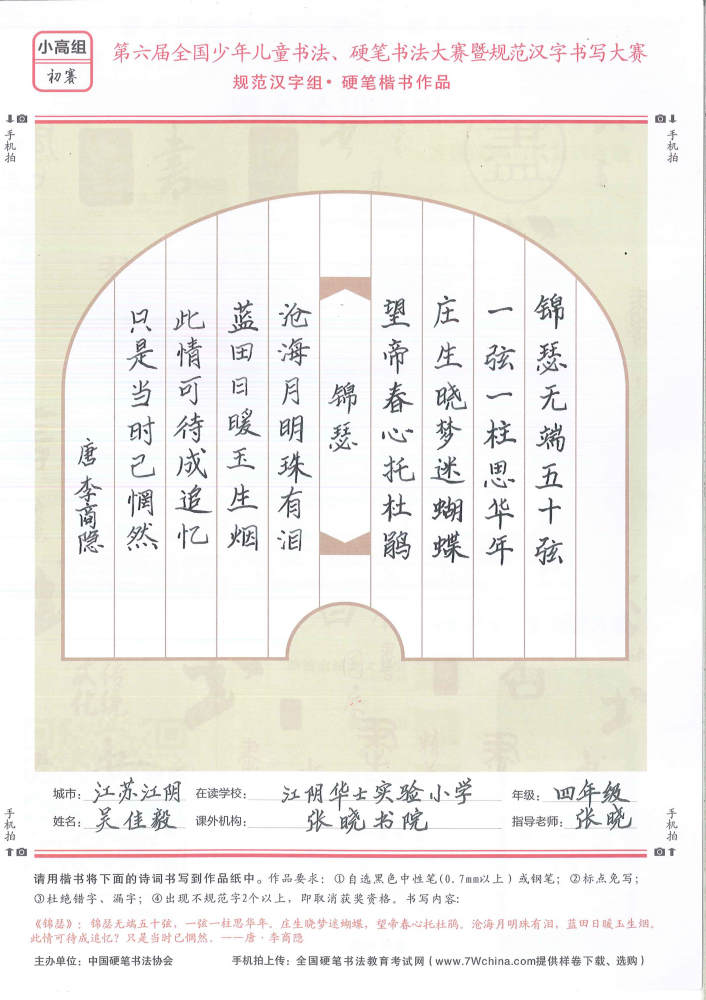 小高组
初赛
第六届全国少年儿童书法、硬笔书法大赛暨规范汉字书写大赛
规范汉字组·硬笔楷书作品
手机拍
手机拍
锦瑟无端五十弦
一弦一柱思华年
庄生晓梦迷蝴蝶
望帝春心托杜鹃
锦瑟
沧海月明珠有泪
蓝田日暖玉生烟
此情可待成追忆
只是当时已惘然
唐李商隐
城市：江苏江阴 在读学校：江阴华士实验小学 年级：四年级
姓名：吴佳毅 课外机构：张晓书院 指导老师：张晓
手机拍
手机拍
请用楷书将下面的诗词书写到作品纸中。作品要求：①自选黑色中性笔(0.7mm以上）或钢笔；②标点免写；
③杜绝错字、漏字；④出现不规范字2个以上，即取消获奖资格。书写内容：
《锦瑟》：锦瑟无端五十弦，一弦一柱思华年。庄生晓梦迷蝴蝶，望帝春心托杜鹃。沧海月明珠有泪，蓝田日暖玉生烟。
此情可待成追忆？只是当时已惘然。——唐·李商隐
主办单位：中国硬笔书法协会 手机拍上传：全国硬笔书法教育考试网（www.7Wchina.com提供样卷下载、选购）